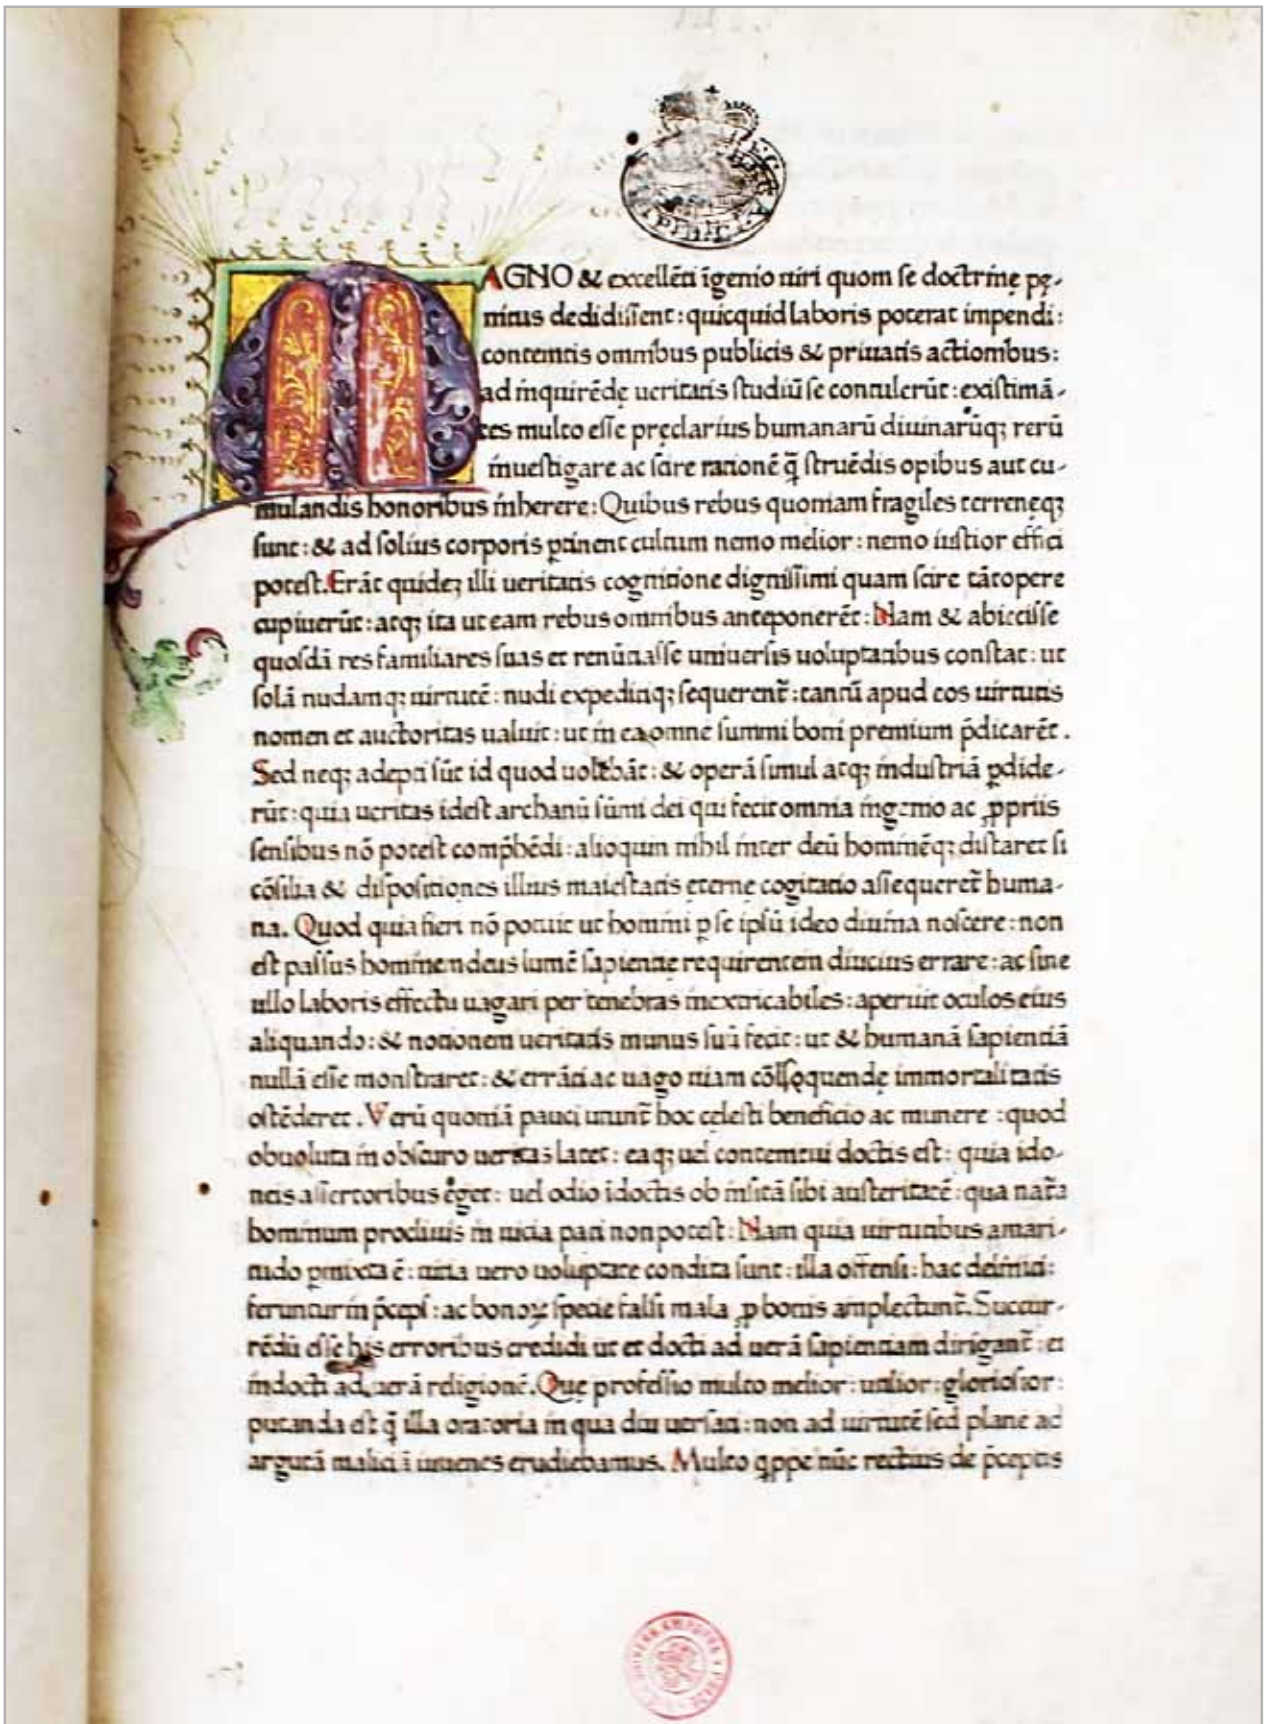 MAGNO & excellēti īgenio uiri quom se doctrinę pę-
nitus dedidissent : quicquid laboris poterat impendi :
contemtis omnibus publicis & priuatis actionibus :
ad inquirēdę ueritatis studiū se contulerūt : existimā-
tes multo esse pręclarius humanarū diuinarūq; rerū
inuestigare ac scire rationē q̄ struēdis opibus aut cu-
mulandis honoribus inherere : Quibus rebus quoniam fragiles terreneq;
sunt : & ad solius corporis ꝑtinent cultum nemo melior : nemo iustior effici
potest. Erāt quideꝫ illi ueritatis cognitione dignissimi quam scire tātopere
cupiuerūt : atq; ita ut eam rebus omnibus anteponerēt : Nam & abiecisse
quosdā res familiares suas et renūtiasse uniuersis uoluptatibus constat : ut
solā nudamq; uirtutē : nudi expeditiq; sequerent̄ : tantū apud eos uirtutis
nomen et auctoritas ualuit : ut in ea omne summi boni premium p̄dicarēt .
Sed neq; adepti sūt id quod uolebāt : & operā simul atq; industriā ꝑdide-
rūt : quia ueritas idest archanū sūmi dei qui fecit omnia ingenio ac ꝓpriis
sensibus nō potest comp̄hēdi : alioquin nihil inter deū hominēq; distaret si
cōsilia & dispositiones illius maiestatis eterne cogitatio assequeret̄ huma-
na. Quod quia fieri nō potuit ut homini ꝑ se ipsū ideo diuina noscere : non
est passus hominen deus lumē sapientię requirentem diucius errare : ac sine
ullo laboris effectu uagari per tenebras inextricabiles : aperuit oculos eius
aliquando : & notionem ueritatis munus suū fecit : ut & humanā sapientiā
nullā esse monstraret : & errāti ac uago uiam cōsequendę immortalitatis
ostēderet . Verū quoniā pauci utunt̄ hoc cęlesti beneficio ac munere : quod
obuoluta in obscuro ueritas latet : eaq; uel contemtui doctis est : quia ido-
neis assertoribus eget : uel odio īdoctis ob insitā sibi austeritatē : qua nat̄a
hominum procliuis in uicia pati non potest : Nam quia uirtutibus amari-
tudo ꝑmixta ē : uitia uero uoluptate condita sunt : illa offensi : hac deliniti :
feruntur in p̄ceps : ac bonoꝝ specie falsi mala ꝓ bonis amplectunt̄. Succur-
rēdū esse his erroribus credidi ut et docti ad uerā sapientiam dirigant̄ : et
indocti ad uerā religionē. Quę professio multo melior : utilior : gloriosior :
putanda est q̄ illa oratoria in qua diu uersati : non ad uirtutē sed plane ad
argutā maliciā iuuenes erudiebamus. Multo q̄ppe nūc rectius de p̄ceptis